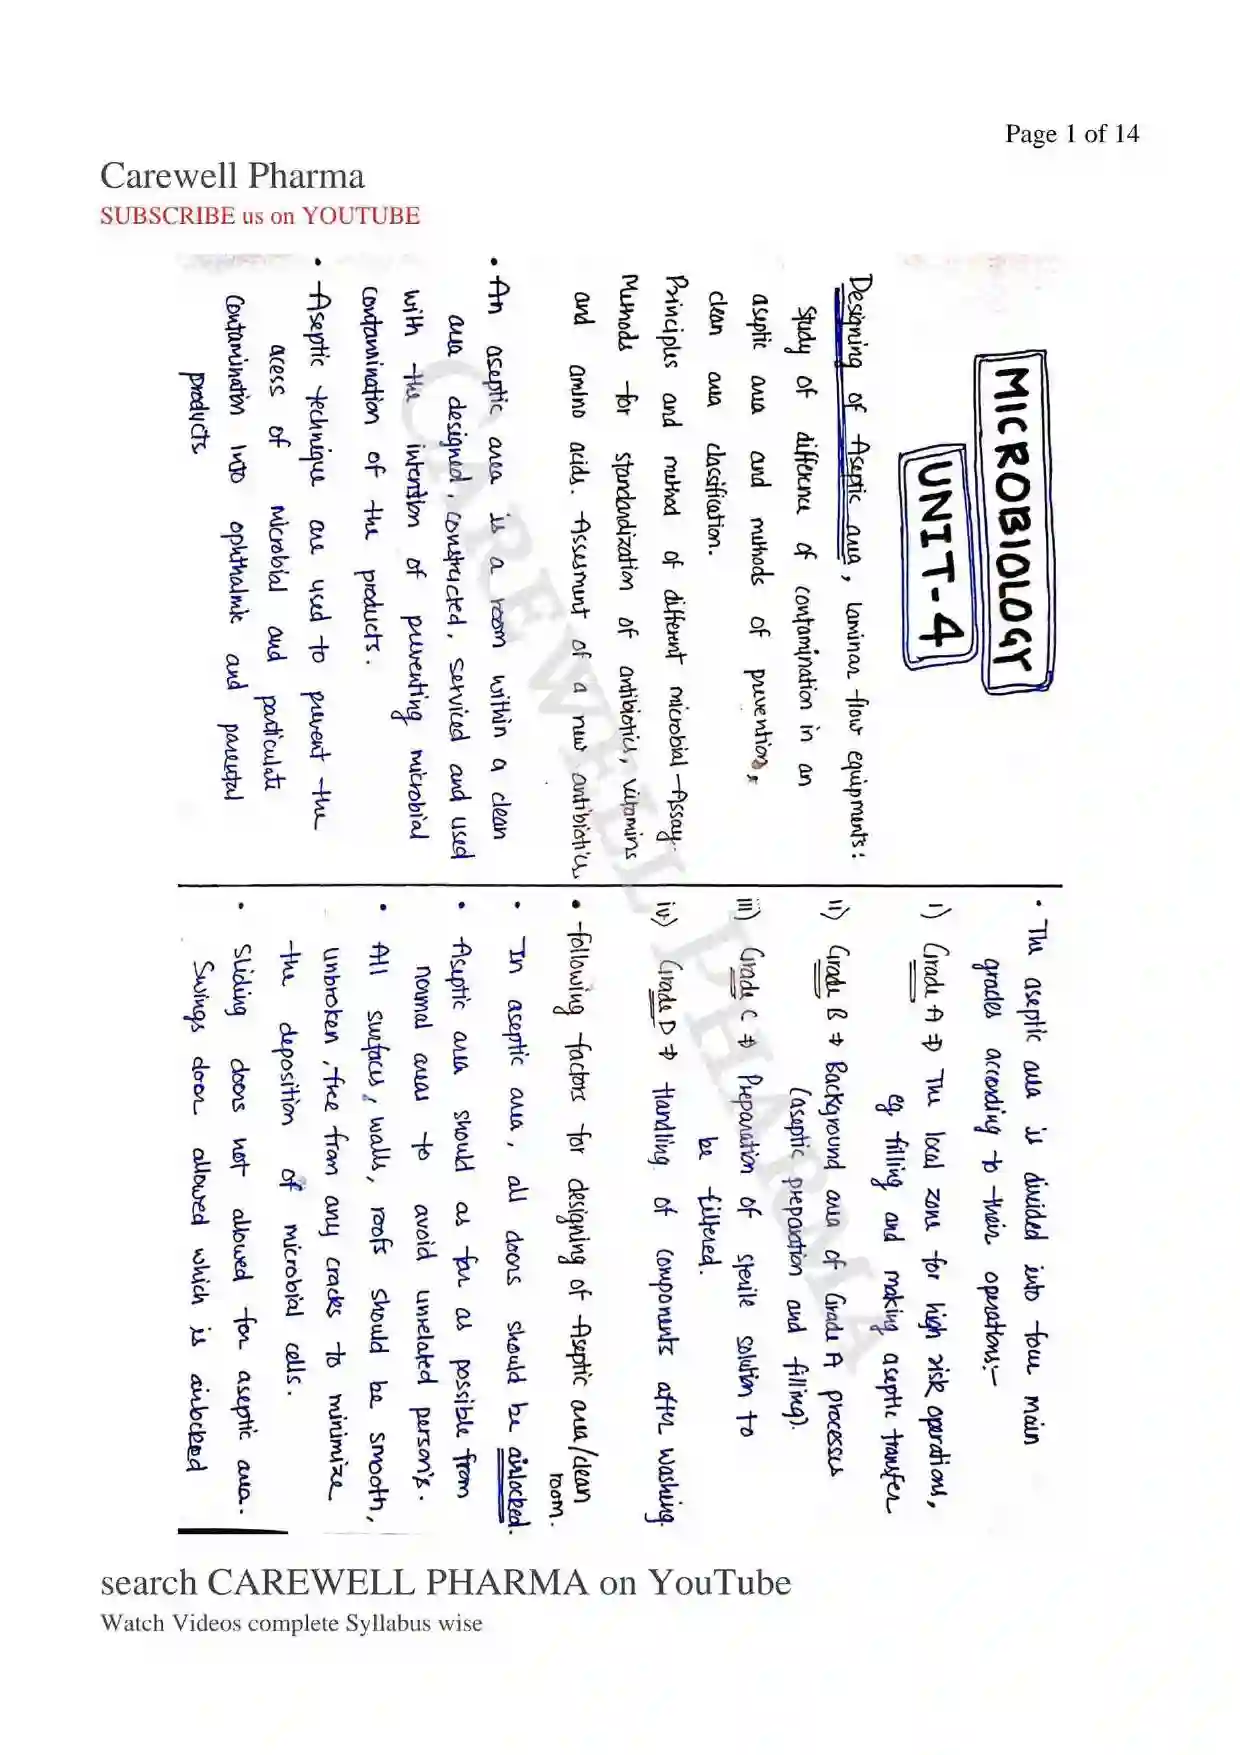 Page 1 of 14
Carewell Pharma
SUBSCRIBE us on YOUTUBE
MICROBIOLOGY
UNIT-4
Designing of Aseptic area, laminar flow equipments:
study of difference of contamination in an
aseptic area and methods of prevention,
clean area classification.
Principles and method of different microbial Assay.
Methods for standardization of antibiotics, vitamins
and amino acids. Assesment of a new antibiotics.
• An aseptic area is a room within a clean
area designed, constructed, serviced and used
with the intention of preventing microbial
contamination of the products.
• Aseptic technique are used to prevent the
acess of microbial and particulate
contamination into ophthalmic and parental
products
• The aseptic area is divided into four main
grades according to their operations:-
i) Grade A ⇒ The local zone for high risk operations,
eg filling and making aseptic transfer
ii) Grade B ⇒ Background area of Grade A processes
(aseptic preparation and filling).
iii) Grade C ⇒ Preparation of sterile solution to
be filtered.
iv) Grade D ⇒ Handling of components after washing.
• following factors for designing of Aseptic area/clean
room.
• In aseptic area, all doors should be airlocked.
• Aseptic area should as far as possible from
normal areas to avoid unrelated person's.
• All surfaces, walls, roofs should be smooth,
unbroken, free from any cracks to minimize
the deposition of microbial cells.
• Sliding doors not allowed for aseptic area.
Swings door allowed which is airlocked
CAREWELL PHARMA
search CAREWELL PHARMA on YouTube
Watch Videos complete Syllabus wise